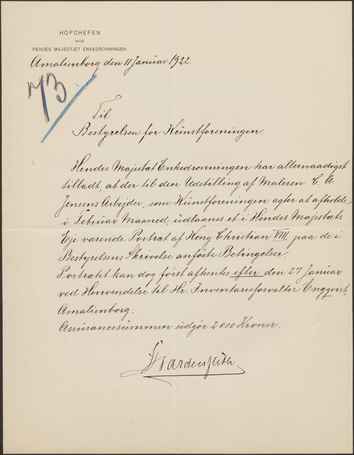 HOFCHEFEN
HOS
HENDES MAJESTÆT ENKEDRONNINGEN
Amalienborg den 11 Januar 1922
73
Til
Bestyrelsen for Kunstforeningen
Hendes Majestæt Enkedronningen har allernaadigst
tilladt, at der til den Udstilling af Maleren C. A.
Jensens Arbejder, som Kunstforeningen agter at afholde
i Februar Maaned, udlaanes et i Hendes Majestæts
Eje værende Portræt af Kong Christian VIII paa de i
Bestyrelsens Skrivelse anførte Betingelser.
Portrætet kan dog først afhentes efter den 27 Januar
ved Henvendelse til Hr. Inventarieforvalter
Amalienborg.
Assurancesummen udgør 2000 Kroner.